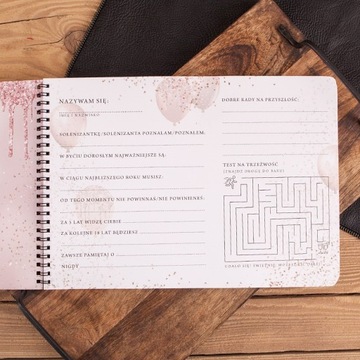 NAZYWAM SIĘ:
IMIĘ I NAZWISKO
SOLENIZANTKĘ/SOLENIZANTA POZNAŁAM/POZNAŁEM:
W BYCIU DOROSŁYM NAJWAŻNIEJSZE SĄ:
W CIĄGU NAJBLIŻSZEGO ROKU MUSISZ:
OD TEGO MOMENTU NIE POWINNAŚ/NIE POWINIENEŚ:
ZA 5 LAT WIDZĘ CIEBIE
ZA KOLEJNE 18 LAT BĘDZIESZ
ZAWSZE PAMIĘTAJ O
NIGDY
DOBRE RADY NA PRZYSZŁOŚĆ:
TEST NA TRZEŹWOŚĆ
(ZNAJDŹ DROGĘ DO BARU)